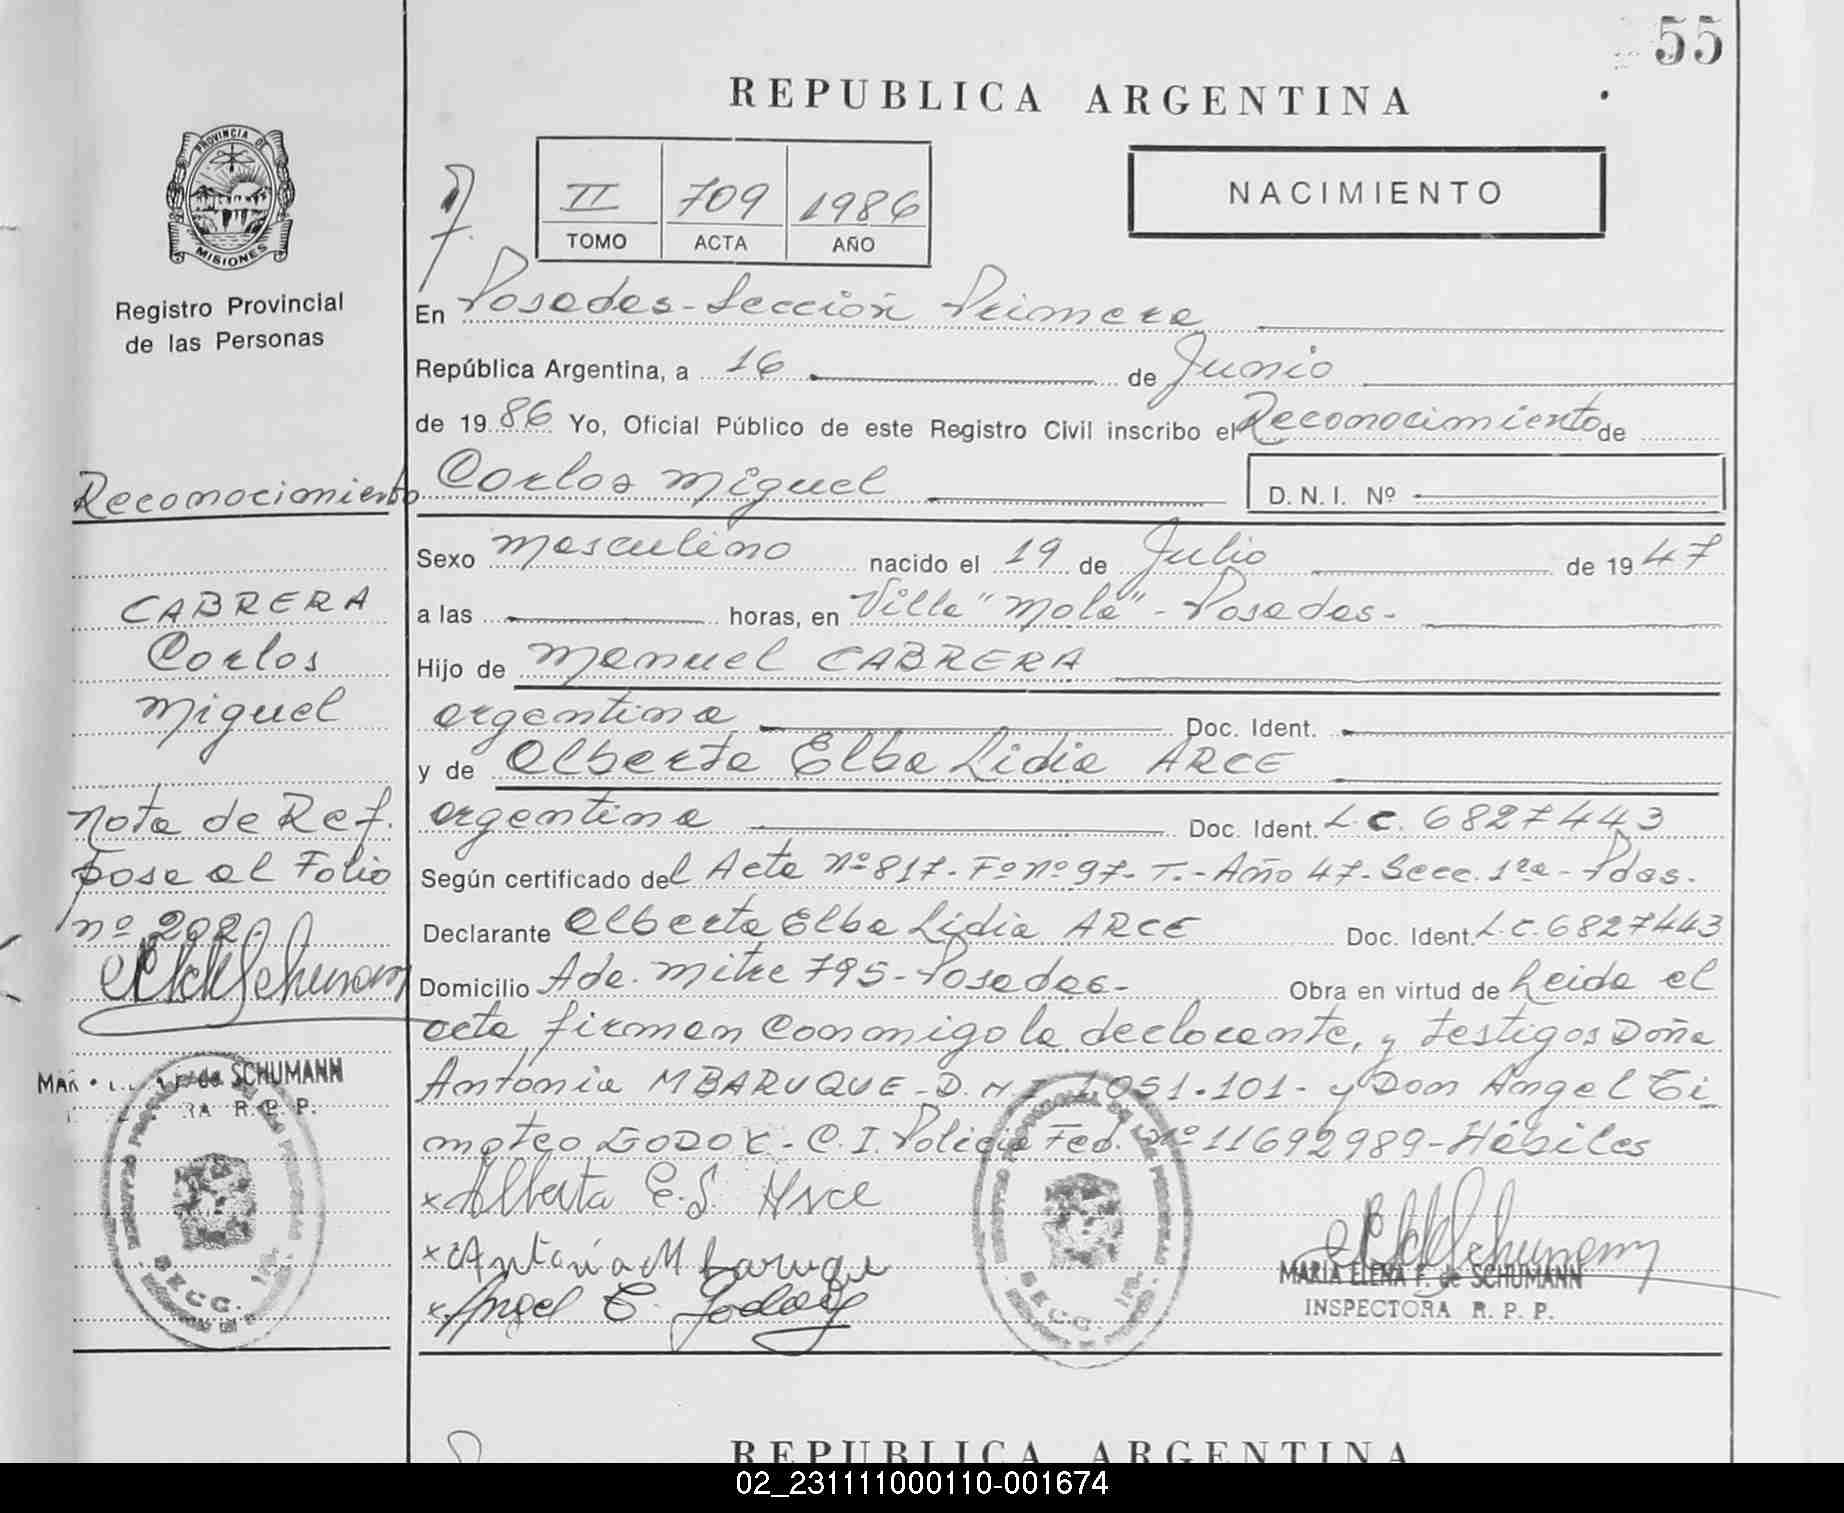 55
REPUBLICA ARGENTINA
PROVINCIA DE
MISIONES
Registro Provincial
de las Personas
II 709 1986
TOMO ACTA AÑO
NACIMIENTO
En Posadas-Sección Primera
República Argentina, a 16 de Junio
de 19 86 Yo, Oficial Público de este Registro Civil inscribo el Reconocimiento de
Carlos Miguel D. N. I. Nº
Sexo masculino nacido el 19 de Julio de 19 47
a las horas, en Villa "Mola" - Posadas-
Hijo de Manuel CABRERA
argentina Doc. Ident.
y de Alberta Elba Lidia ARCE
argentina Doc. Ident. L.C. 6827443
Según certificado del Acta nº 817- Fº nº 97- T.- Año 47- Secc. 1ra - Pdas.
Declarante Alberta Elba Lidia ARCE Doc. Ident. L.C. 6827443
Domicilio Ada. Mitre 795-Posadas- Obra en virtud de Leida el
acta firman conmigo la declarante, y testigos Doña
Antonia MBARUQUE-D.N.I 1051.101- y Don Angel Ti
moteo GODOY- C.I. Policia Fed. nº 11692989-Hábiles
x Alberta E. L. Arce
x Antonia Mbaruque
x Angel T. Godoy
MARIA ELENA F. de SCHUMANN
INSPECTORA R. P. P.
SECC. 1ra.
Reconocimiento
CABRERA
Carlos
Miguel
Nota de Ref.
pasa al Folio
nº 202.
de SCHUMANN
R. P. P.
SECC. 1ra.
REPUBLICA ARGENTINA
02_231111000110-001674